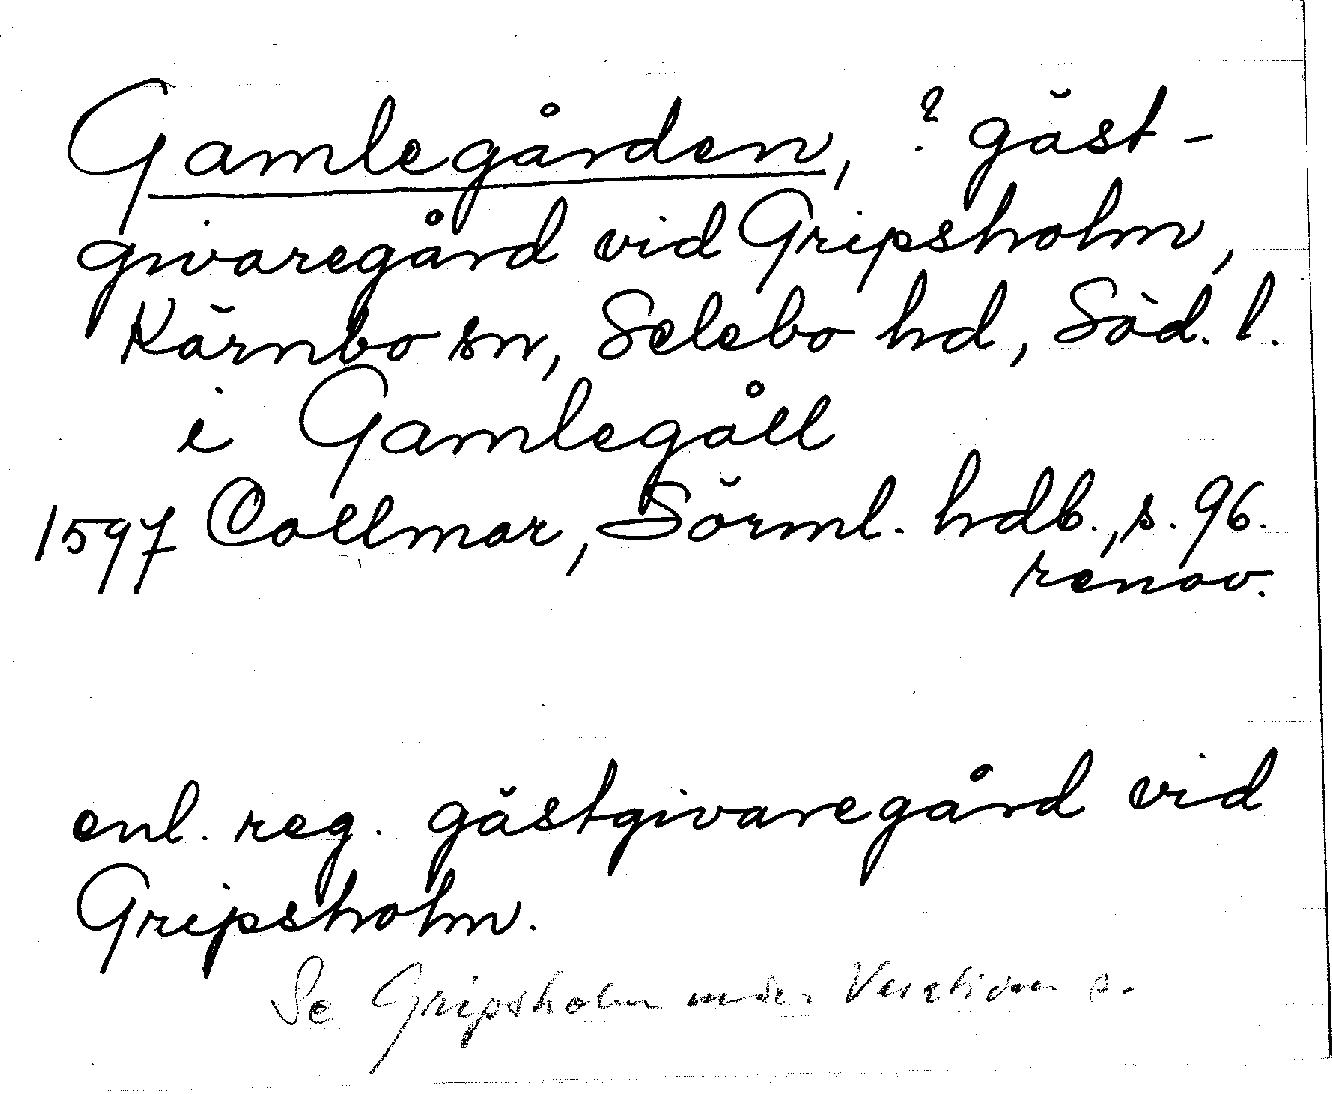 Gamlegården, ? gäst-
givaregård vid Gripsholm,
Kärnbo sn, Selebo hd, Söd. l.
i Gamlegåll
1597 Collmar, Sörml. hdb., s. 96.
renov.
enl. reg. gästgivaregård vid
Gripsholm.
Se Gripsholm under s.